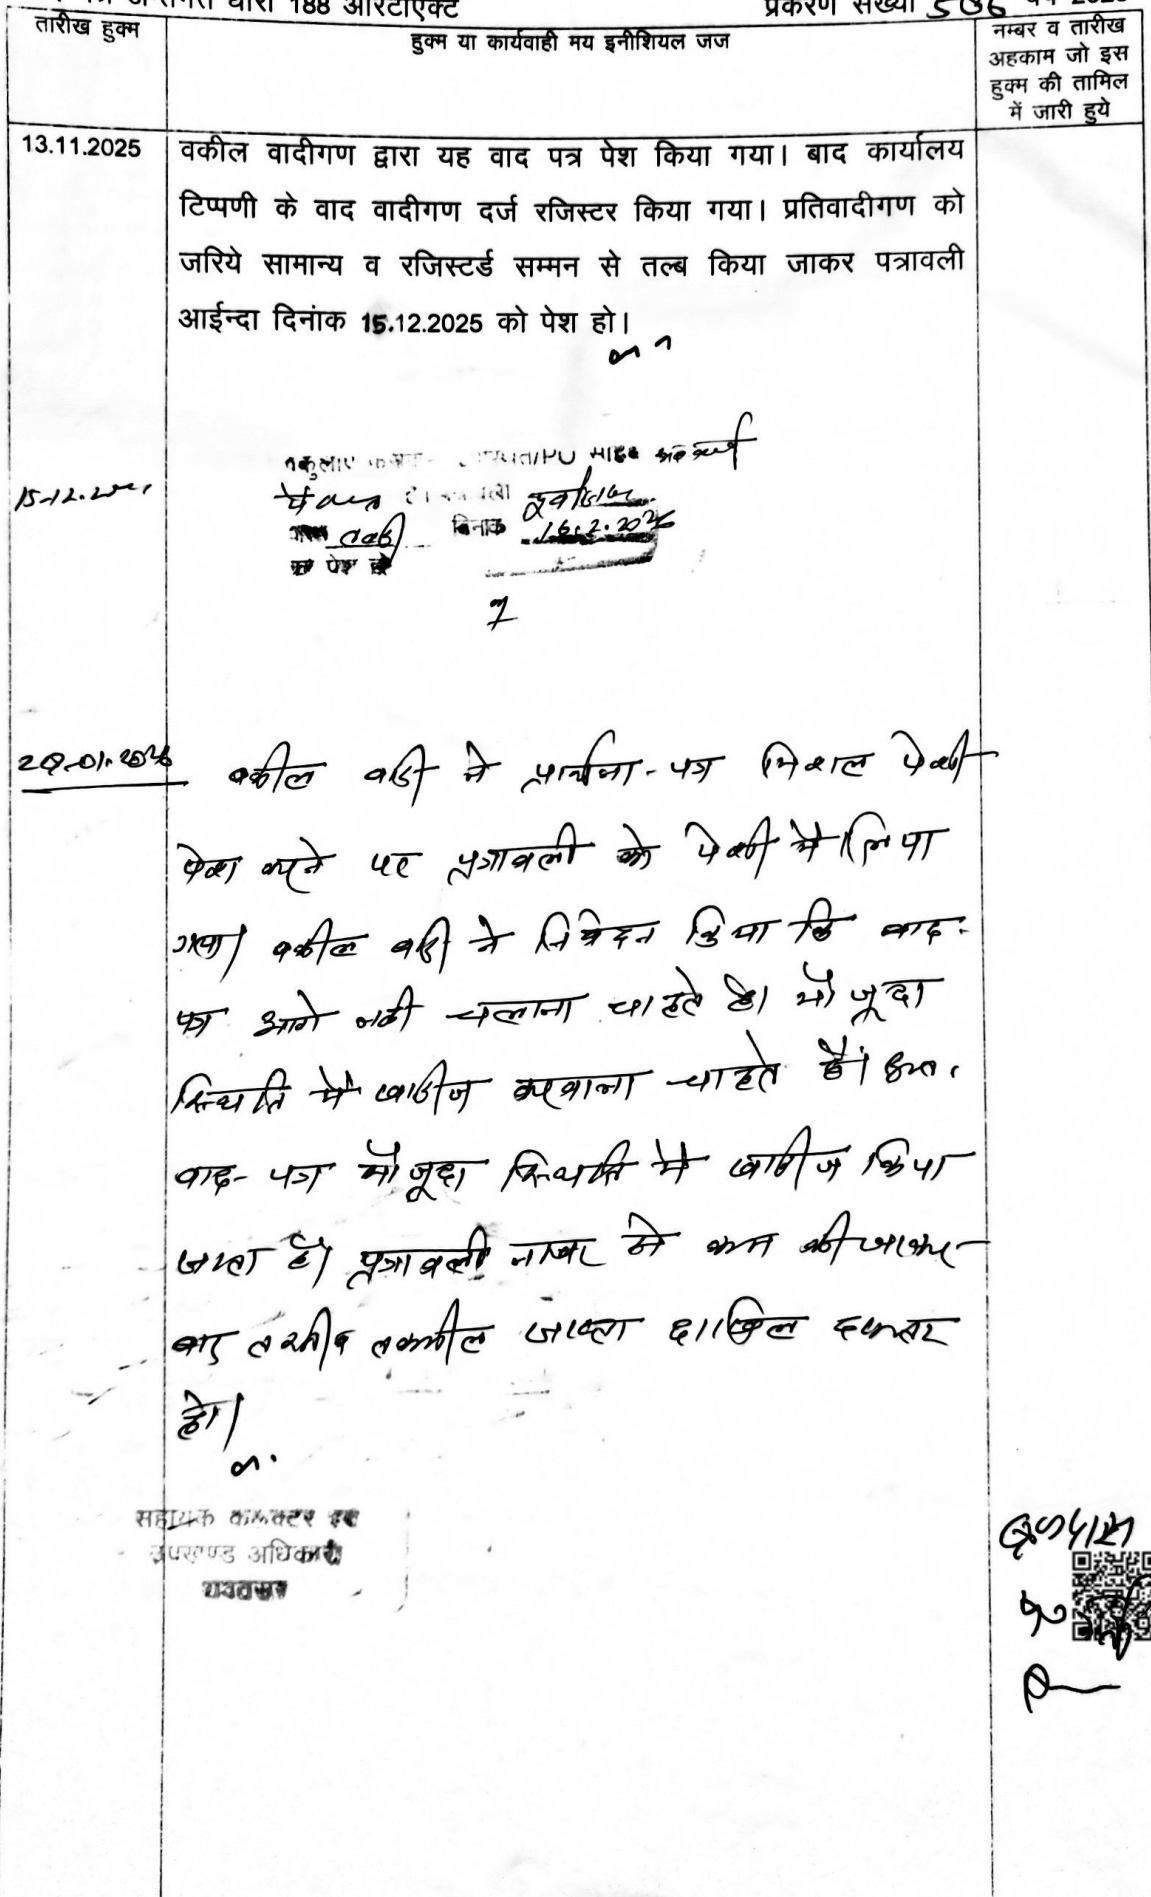 धारा 188 आरटीएक्ट प्रकरण संख्या 506
तारीख हुक्म
हुक्म या कार्यवाही मय इनीशियल जज
नम्बर व तारीख
अहकाम जो इस
हुक्म की तामिल
में जारी हुये
13.11.2025
वकील वादीगण द्वारा यह वाद पत्र पेश किया गया। बाद कार्यालय
टिप्पणी के वाद वादीगण दर्ज रजिस्टर किया गया। प्रतिवादीगण को
जरिये सामान्य व रजिस्टर्ड सम्मन से तल्ब किया जाकर पत्रावली
आईन्दा दिनांक 15.12.2025 को पेश हो।
15-12-2025
दिनांक 16.2.2026
पेश हो
वकील वादी ने प्रार्थना-पत्र मिशल पेशी
पेश करने पर पत्रावली को पेशी में लिया
गया। वकील वादी ने निवेदन किया कि वाद-
पत्र आगे नही चलाना चाहते है। मौजूदा
स्थिति में खारीज करवाना चाहते हैं। अतः
वाद-पत्र मौजूदा स्थिति में खारीज किया
जाता है। पत्रावली नम्बर से कम की जाकर
बाद तरतीब तकमील जाब्ता दाखिल दफ्तर
हो।
सहायक कलक्टर एवं
उपखण्ड अधिकारी